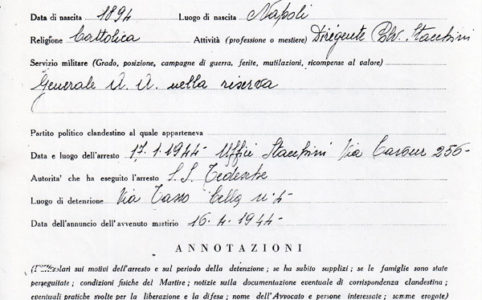 Data di nascita 1894 Luogo di nascita Napoli
Religione Cattolica Attività (professione o mestiere) Dirigente Stacchini
Servizio militare (Grado, posizione, campagne di guerra, ferite, mutilazioni, ricompense al valore)
Generale nella riserva
Partito politico clandestino al quale apparteneva
Data e luogo dell'arresto 17.1.1944 - Uffici Stacchini Via Cavour 255-
Autorita' che ha eseguito l'arresto S.S. Tedesche
Luogo di detenzione Via Tasso Cella n. 4-
Data dell'annuncio dell'avvenuto martirio 16.4.1944-
ANNOTAZIONI
(Particolari sui motivi dell'arresto e sul periodo della detenzione; se ha subito supplizi; se le famiglie sono state
perseguitate; condizioni fisiche del Martire; notizie sulla documentazione eventuale di corrispondenza clandestina;
eventuali pratiche svolte per la liberazione e la difesa; nome dell'Avvocato e persone interessate; somme erogate)